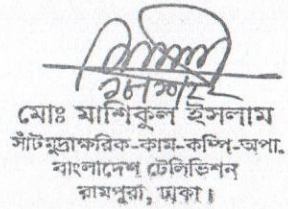 ২৮/১০/২২
মোঃ মাশিকুল ইসলাম
সাঁটমুদ্রাক্ষরিক-কাম-কম্পি-অপা.
বাংলাদেশ টেলিভিশন
রামপুরা, ঢাকা।